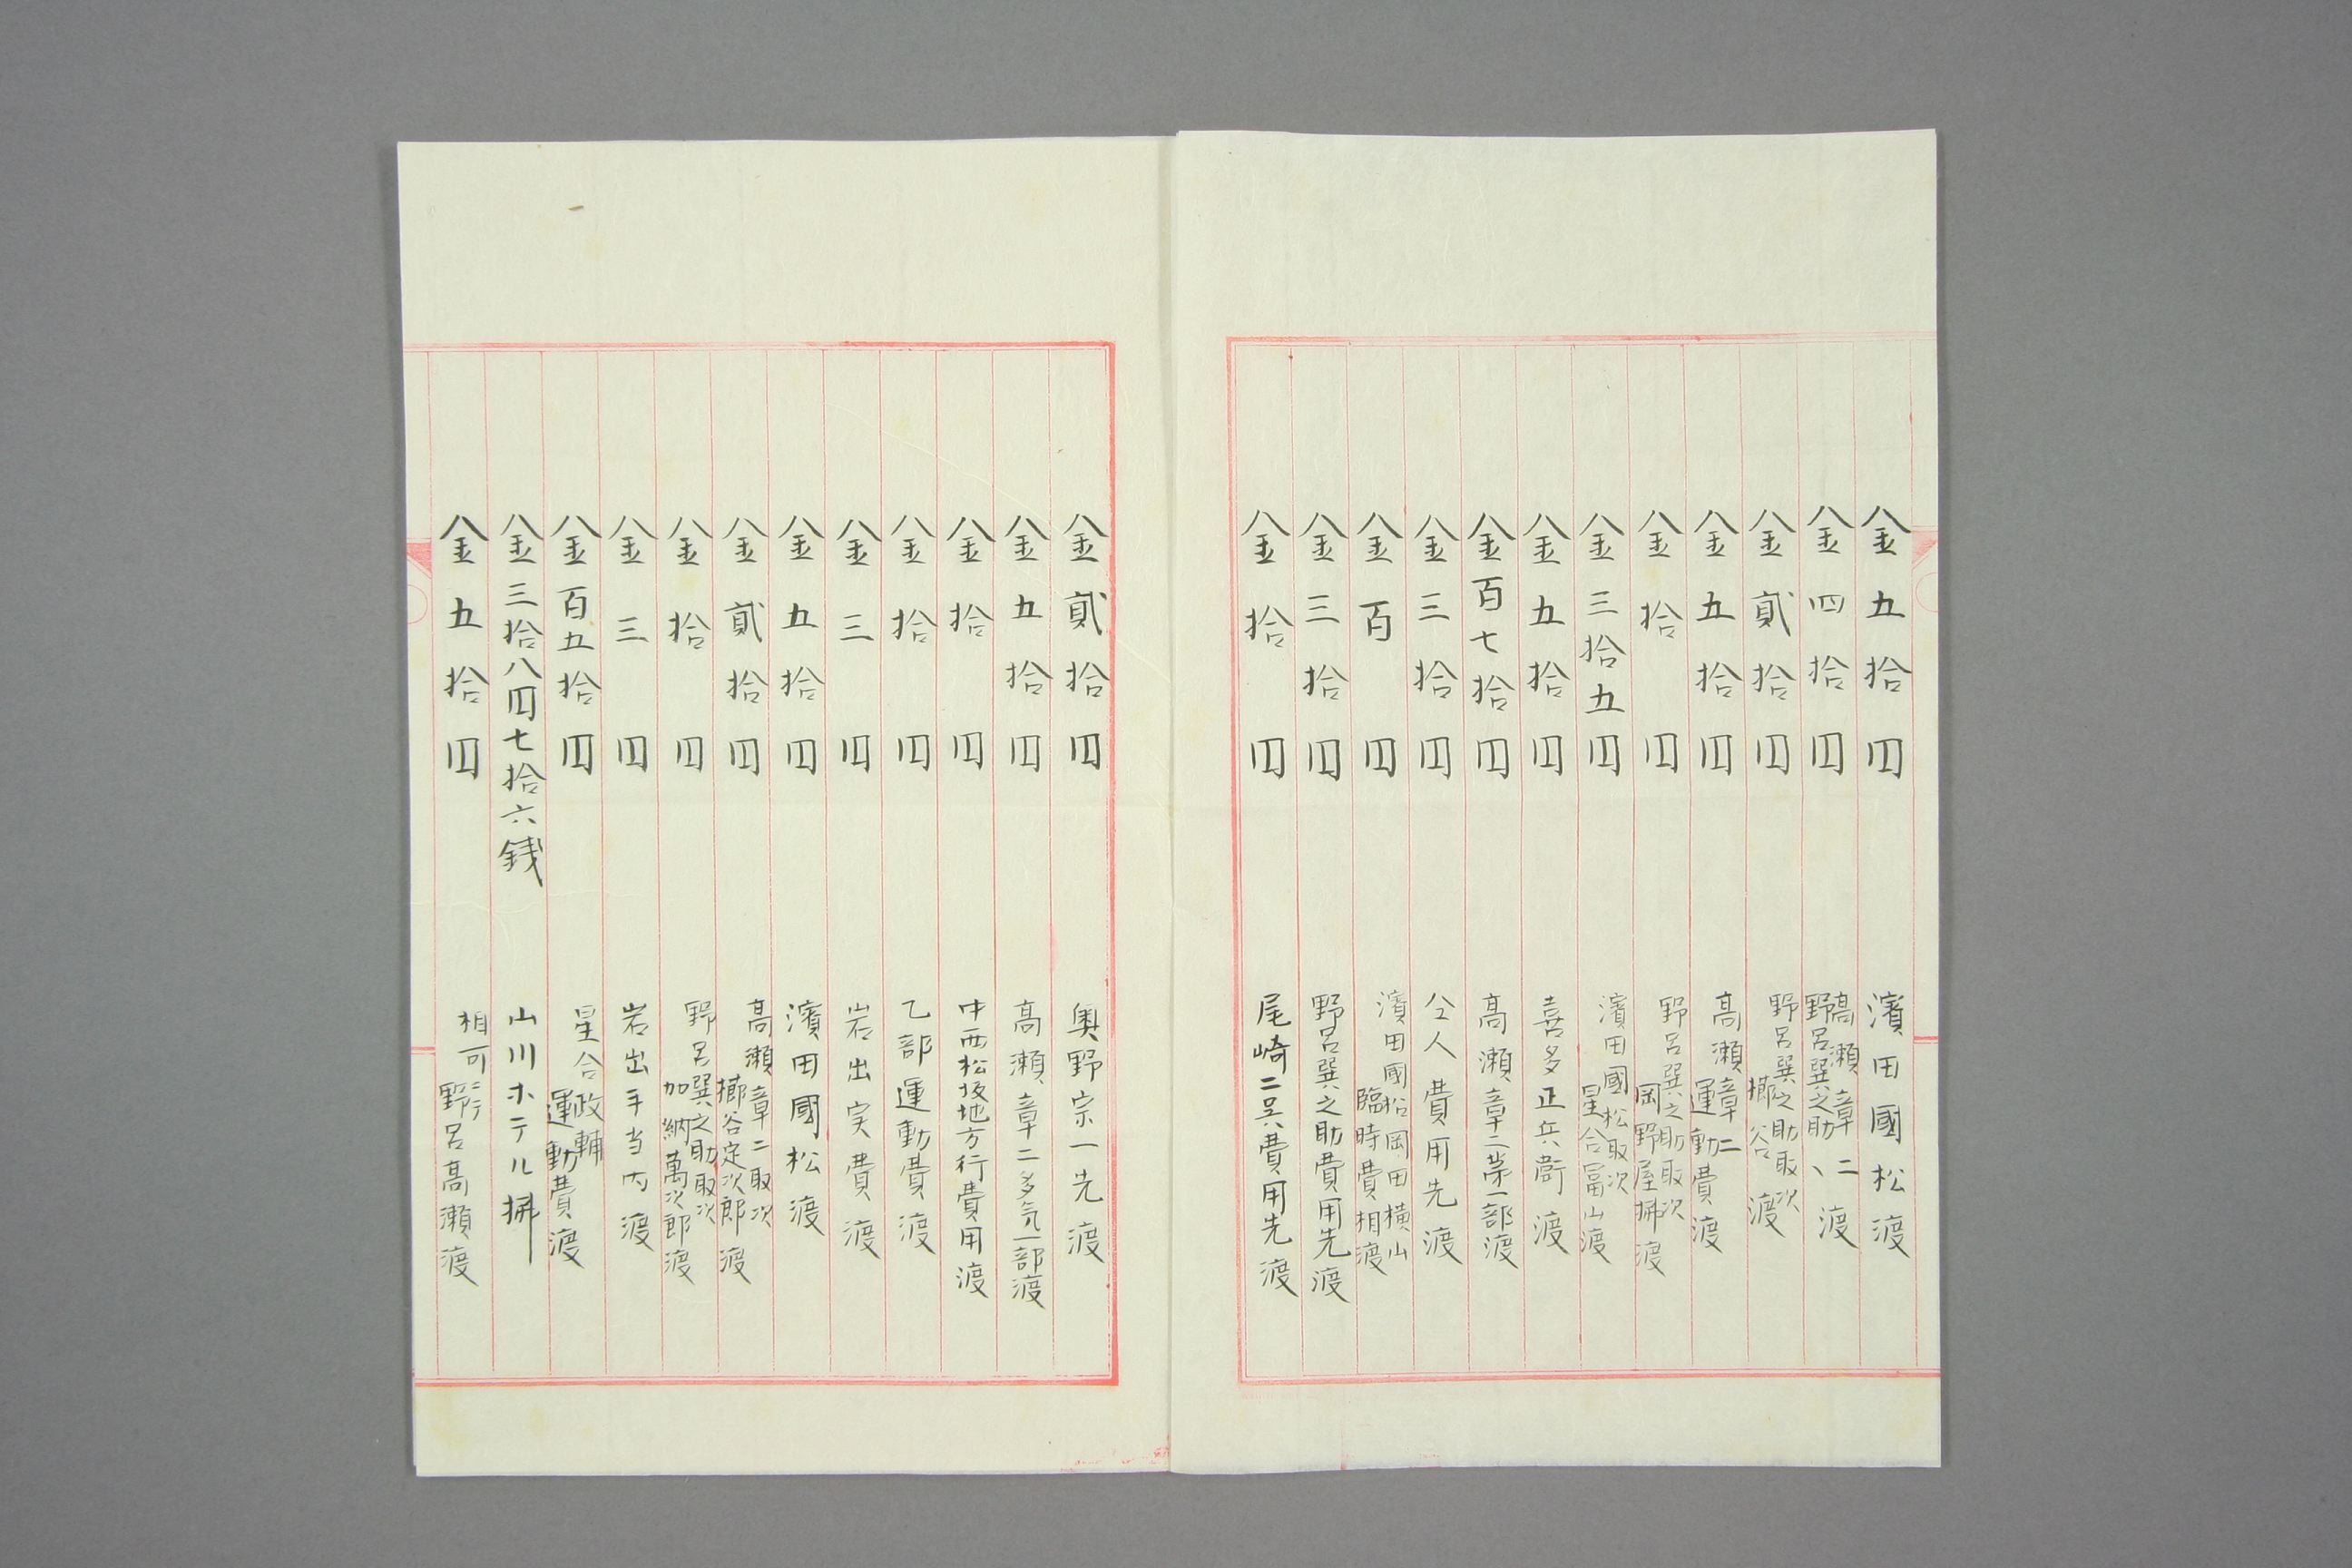 金五拾円 濱田國松渡
金四拾円 高瀬章二
野呂巽之助、渡
金貳拾円 野呂巽之助取次
櫛谷渡
金五拾円 高瀬章二
運動費渡
金拾円 野呂巽之助取次
岡野屋拂渡
金三拾五円 濱田國松取次
星合冨山渡
金五拾円 喜多正兵衛渡
金百七拾円 高瀬章二第一部渡
金三拾円 仝人費用先渡
金百円 濱田國松岡田横山
臨時費相渡
金三拾円 野呂巽之助費用先渡
金拾円 尾崎二呉費用先渡
金貳拾円 奥野宗一先渡
金五拾円 高瀬章二多気一部渡
金拾円 中西松坂地方行費用渡
金拾円 乙部運動費渡
金三円 岩出実費渡
金五拾円 濱田國松渡
金貳拾円 高瀬章二取次
櫛谷定次郎渡
金拾円 野呂巽之助取次
加納萬次郎渡
金三円 岩出手当内渡
金百五拾円 星合政輔
運動費渡
金三拾八円七拾六銭 山川ホテル拂
金五拾円 相可ニテ
野呂高瀬渡